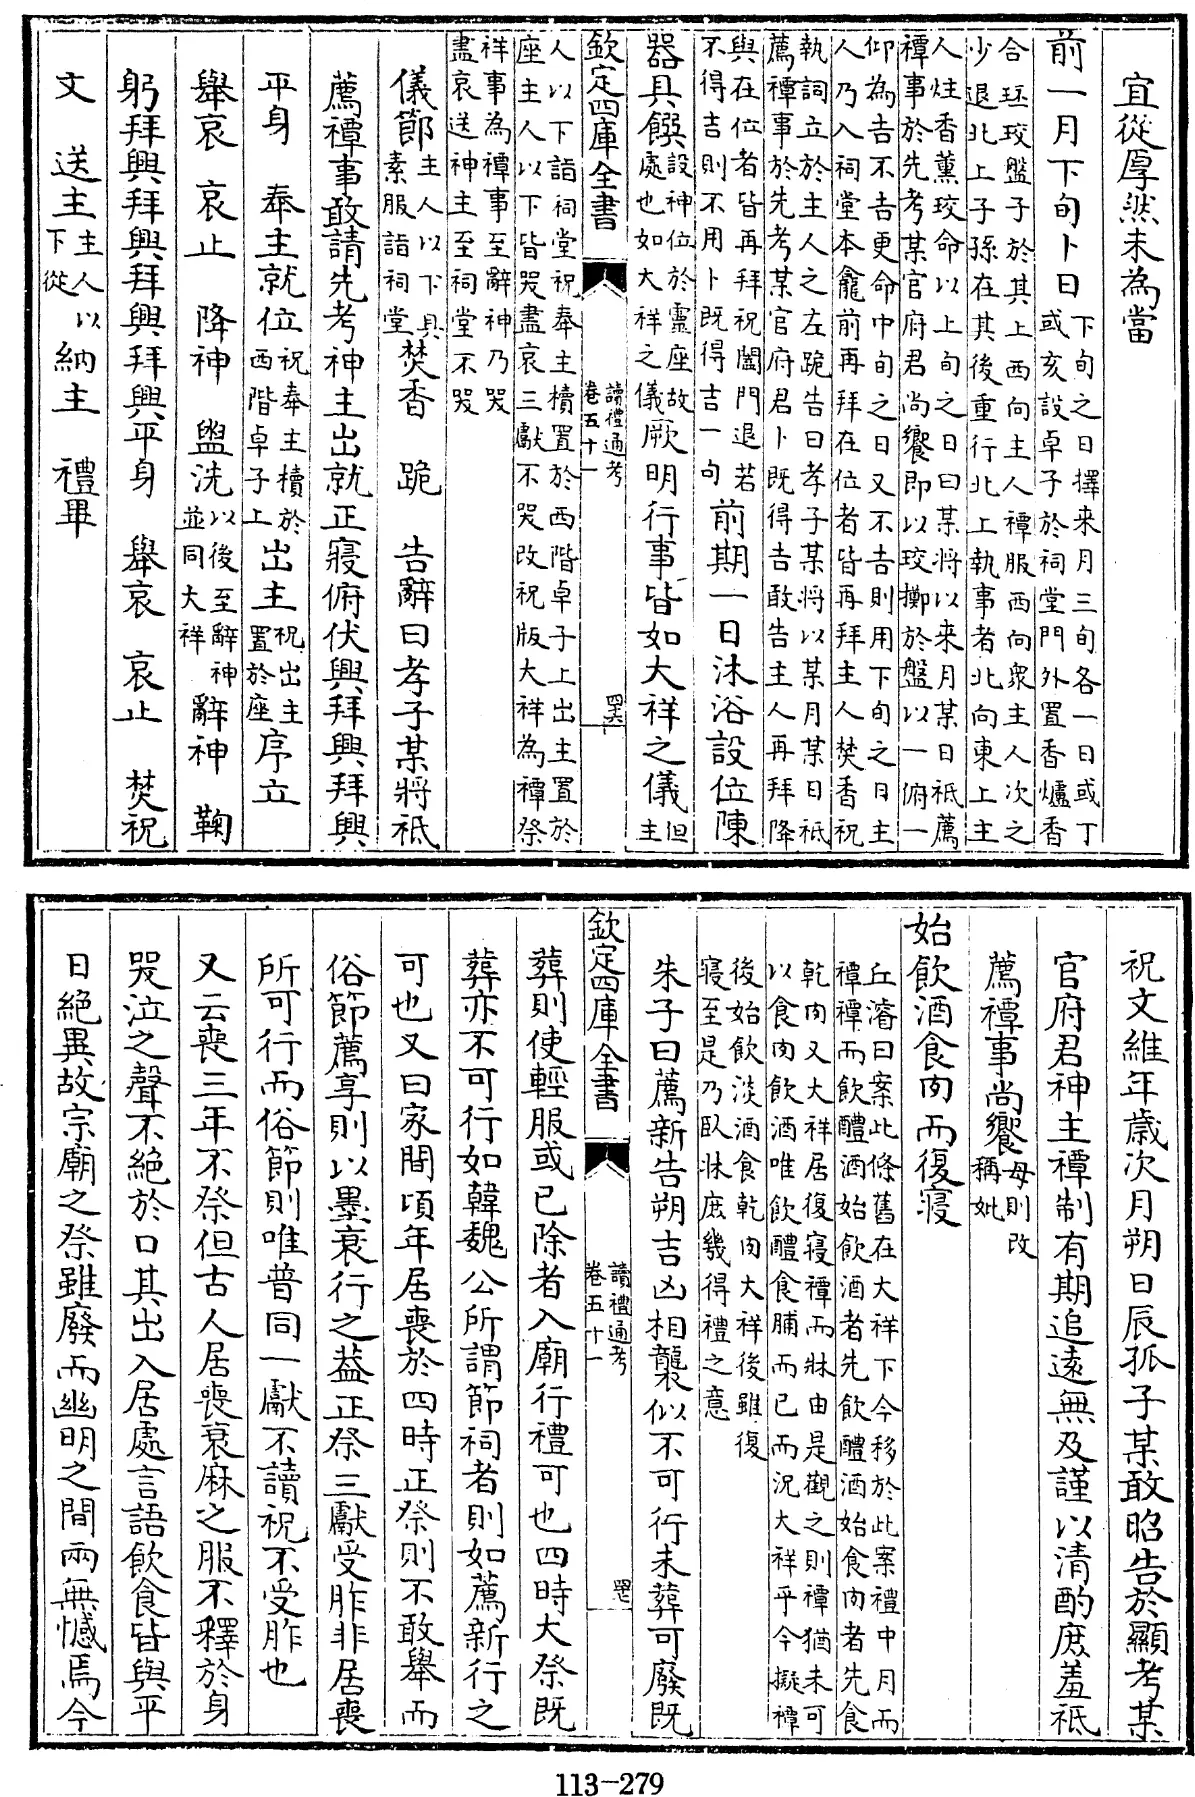 宜從厚然未為當
前一月下旬卜日下旬之日擇來月三旬各一日或丁
或亥設卓子於祠堂門外置香爐香
合环珓盤子於其上西向主人禫服西向衆主人次之
少退北上子孫在其後重行北上執事者北向東上主
人炷香薰珓命以上旬之日曰某將以來月某日祗薦
禫事於先考某官府君尚饗即以珓擲於盤以一俯一
仰為吉不吉更命中旬之日又不吉則用下旬之日主
人乃入祠堂本龕前再拜在位者皆再拜主人焚香祝
執詞立於主人之左跪告曰孝子某將以某月某日祗
薦禫事於先考某官府君卜既得吉敢告主人再拜降
與在位者皆再拜祝闔門退若
不得吉則不用卜既得吉一句前期一日沐浴設位陳
器具饌設神位於靈座故
處也如大祥之儀厥明行事皆如大祥之儀但
主
欽定四庫全書
讀禮通考
卷五十一
四六
人以下詣祠堂祝奉主櫝置於西階卓子上出主置於
座主人以下皆哭盡哀三獻不哭改祝版大祥為禫祭
祥事為禫事至辭神乃哭
盡哀送神主至祠堂不哭
儀節主人以下具
素服詣祠堂焚香 跪 告辭曰孝子某將祗
薦禫事敢請先考神主出就正寢俯伏興拜興拜興
平身 奉主就位祝奉主櫝於
西階卓子上出主祝出主
置於座序立
舉哀 哀止 降神 盥洗以後至辭神
並同大祥辭神 鞠
躬拜興拜興拜興拜興平身 舉哀 哀止 焚祝
文 送主主人以
下從納主 禮畢
祝文維年歲次月朔日辰孤子某敢昭告於顯考某
官府君神主禫制有期追遠無及謹以清酌庶羞祗
薦禫事尚饗母則改
稱妣
始飲酒食肉而復寢
丘濬曰案此條舊在大祥下今移於此案禮中月而
禫禫而飲醴酒始飲酒者先飲醴酒始食肉者先食
乾肉又大祥居復寢禫而牀由是觀之則禫猶未可
以食肉飲酒唯飲醴食脯而已而況大祥乎今擬禫
後始飲淡酒食乾肉大祥後雖復
寢至是乃臥牀庶幾得禮之意
朱子曰薦新告朔吉凶相襲似不可行未葬可廢既
欽定四庫全書
讀禮通考
卷五十一
四七
葬則使輕服或已除者入廟行禮可也四時大祭既
葬亦不可行如韓魏公所謂節祠者則如薦新行之
可也又曰家間頃年居喪於四時正祭則不敢舉而
俗節薦享則以墨衰行之葢正祭三獻受胙非居喪
所可行而俗節則唯普同一獻不讀祝不受胙也
又云喪三年不祭但古人居喪衰麻之服不釋於身
哭泣之聲不絕於口其出入居處言語飲食皆與平
日絕異故宗廟之祭雖廢而幽明之間兩無憾焉今
113-279